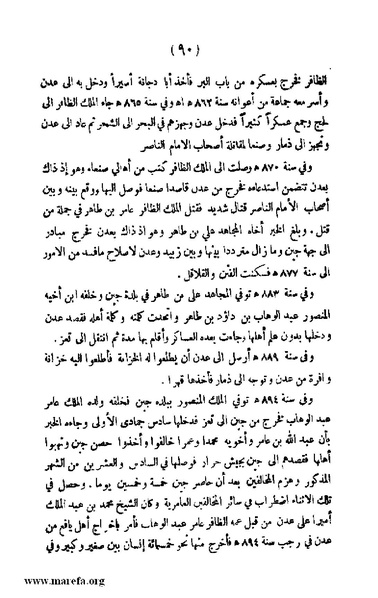 ( ٩٠ )
الظافر فخرج بعسكره من باب البر فأخذ أبا دجانة أسيراً ودخل به الى عدن
وأسر معه جماعة من أعوانه سنة ٨٦٣ هـ اه وفي سنة ٨٦٥ هـ جاء الملك الظافر الى
لحج وجمع عسكراً كثيراً فدخل عدن وجهزهم في البحر الى الشحر ثم عاد الى عدن
وتجهز الى ذمار وصنعا لمقاتلة أصحاب الامام الناصر
وفي سنة ٨٧٠ هـ وصلت الى الملك الظافر كتب من أهالي صنعاء وهو إذ ذاك
بعدن تتضمن استدعاءه فخرج من عدن قاصدا صنعا فوصل اليها ووقع بينه وبين
أصحاب الأمام الناصر قتال شديد فقتل الملك الظافر عامر بن طاهر في جملة من
قتل . وبلغ الخبر أخاه المجاهد علي بن طاهر وهو اذ ذاك بعدن فخرج مبادر
الى جهة جبن وما زال مترددا بينها وبين زبيد وعدن لاصلاح ما فسد من الامور
الى سنة ٨٧٧ هـ فسكنت الفتن والقلاقل .
وفي سنة ٨٨٣ هـ توفي المجاهد على بن طاهر في بلدة جبن وخلفه ابن أخيه
المنصور عبد الوهاب بن داؤد بن طاهر واتحدت كلمته وكلمة أهله فقصد عدن
ودخلها بدون علم أهلها وجاءت بعده العساكر وأقام بها مدة ثم انتقل الى تعز .
وفى سنة ٨٨٩ هـ أرسل الى عدن أن يطلعوا له الخزانة فأطلعوا اليه خزانة
وافرة من عدن وتوجه الى ذمار فأخذها قهرا .
وفي سنة ٨٩٤ هـ توفي الملك المنصور ببلده جبن فخلفه ولده الملك عامر
عبد الوهاب فخرج من جبن الى تعز فدخلها سادس جمادى الأولى وجاءه الخبر
بأن عبد الله بن عامر وأخويه محمدا وعمرا خالفوا وأخذوا حصن جبن ونهبوا
أهلها فقصدهم الى جبن بجيش جرار فوصلها في السادس والعشرين من الشهر
المذكور وهزم المخالفين بعد أن حاصر جبن خمسة وخمسين يوما . وحصل في
تلك الاثناء اضطراب في سائر المخالفين العامرية وكان الشيخ محمد بن عبد الملك
أميرا على عدن من قبل عمه الظافر عامر عبد الوهاب فأمر بإخراج أهل يافع من
عدن في رجب سنة ٨٩٤ هـ فأخرج منها نحو خمسمائة إنسان بين صغير وكبير وفي
www.marefa.org